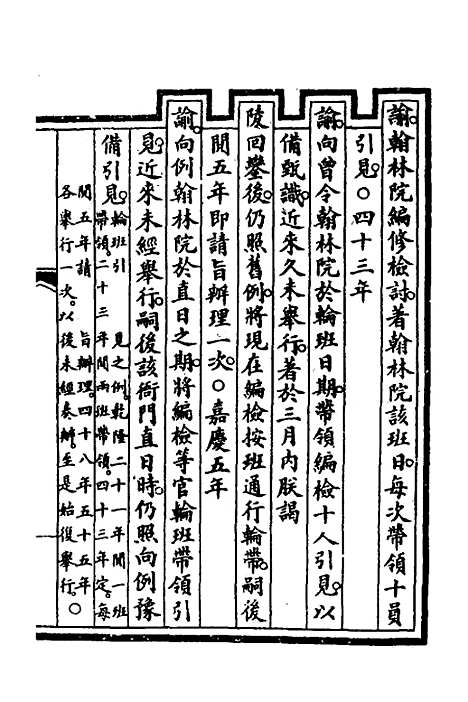 諭。翰林院編修檢討。著翰林院該班日。每次帶領十員
引見。○四十三年
諭。向曾令翰林院於輪班日期。帶領編檢十人引見。以
備甄識。近來久未舉行。著於三月內朕謁
陵回鑾後。仍照舊例。將現在編檢按班通行輪帶。嗣後
間五年即請旨辦理一次。○嘉慶五年
諭。向例翰林院於直日之期。將編檢等官輪班帶領引
見。近來未經舉行。嗣後該衙門直日時。仍照向例豫
備引見。輪班引 見之例。乾隆二十一年間一班
帶領。二十三年間兩班帶領。四十三年定。每
間五年請 旨辦理。四十八年五十五年
各舉行一次。以後未經奏辦。至是始復舉行。○